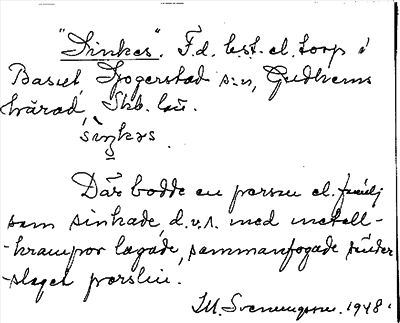 "Sinkes". F.d. bst. el. torp i
Basud, Segerstad s:n, Gudhems
härad, Skb. län.
siŋkəs
Där bodde en person el. familj
som sinkade, d.v.s. med metall-
-krampor lagade, sammanfogade sönder
-slaget porslin.
M. Svenungsson. 1948.